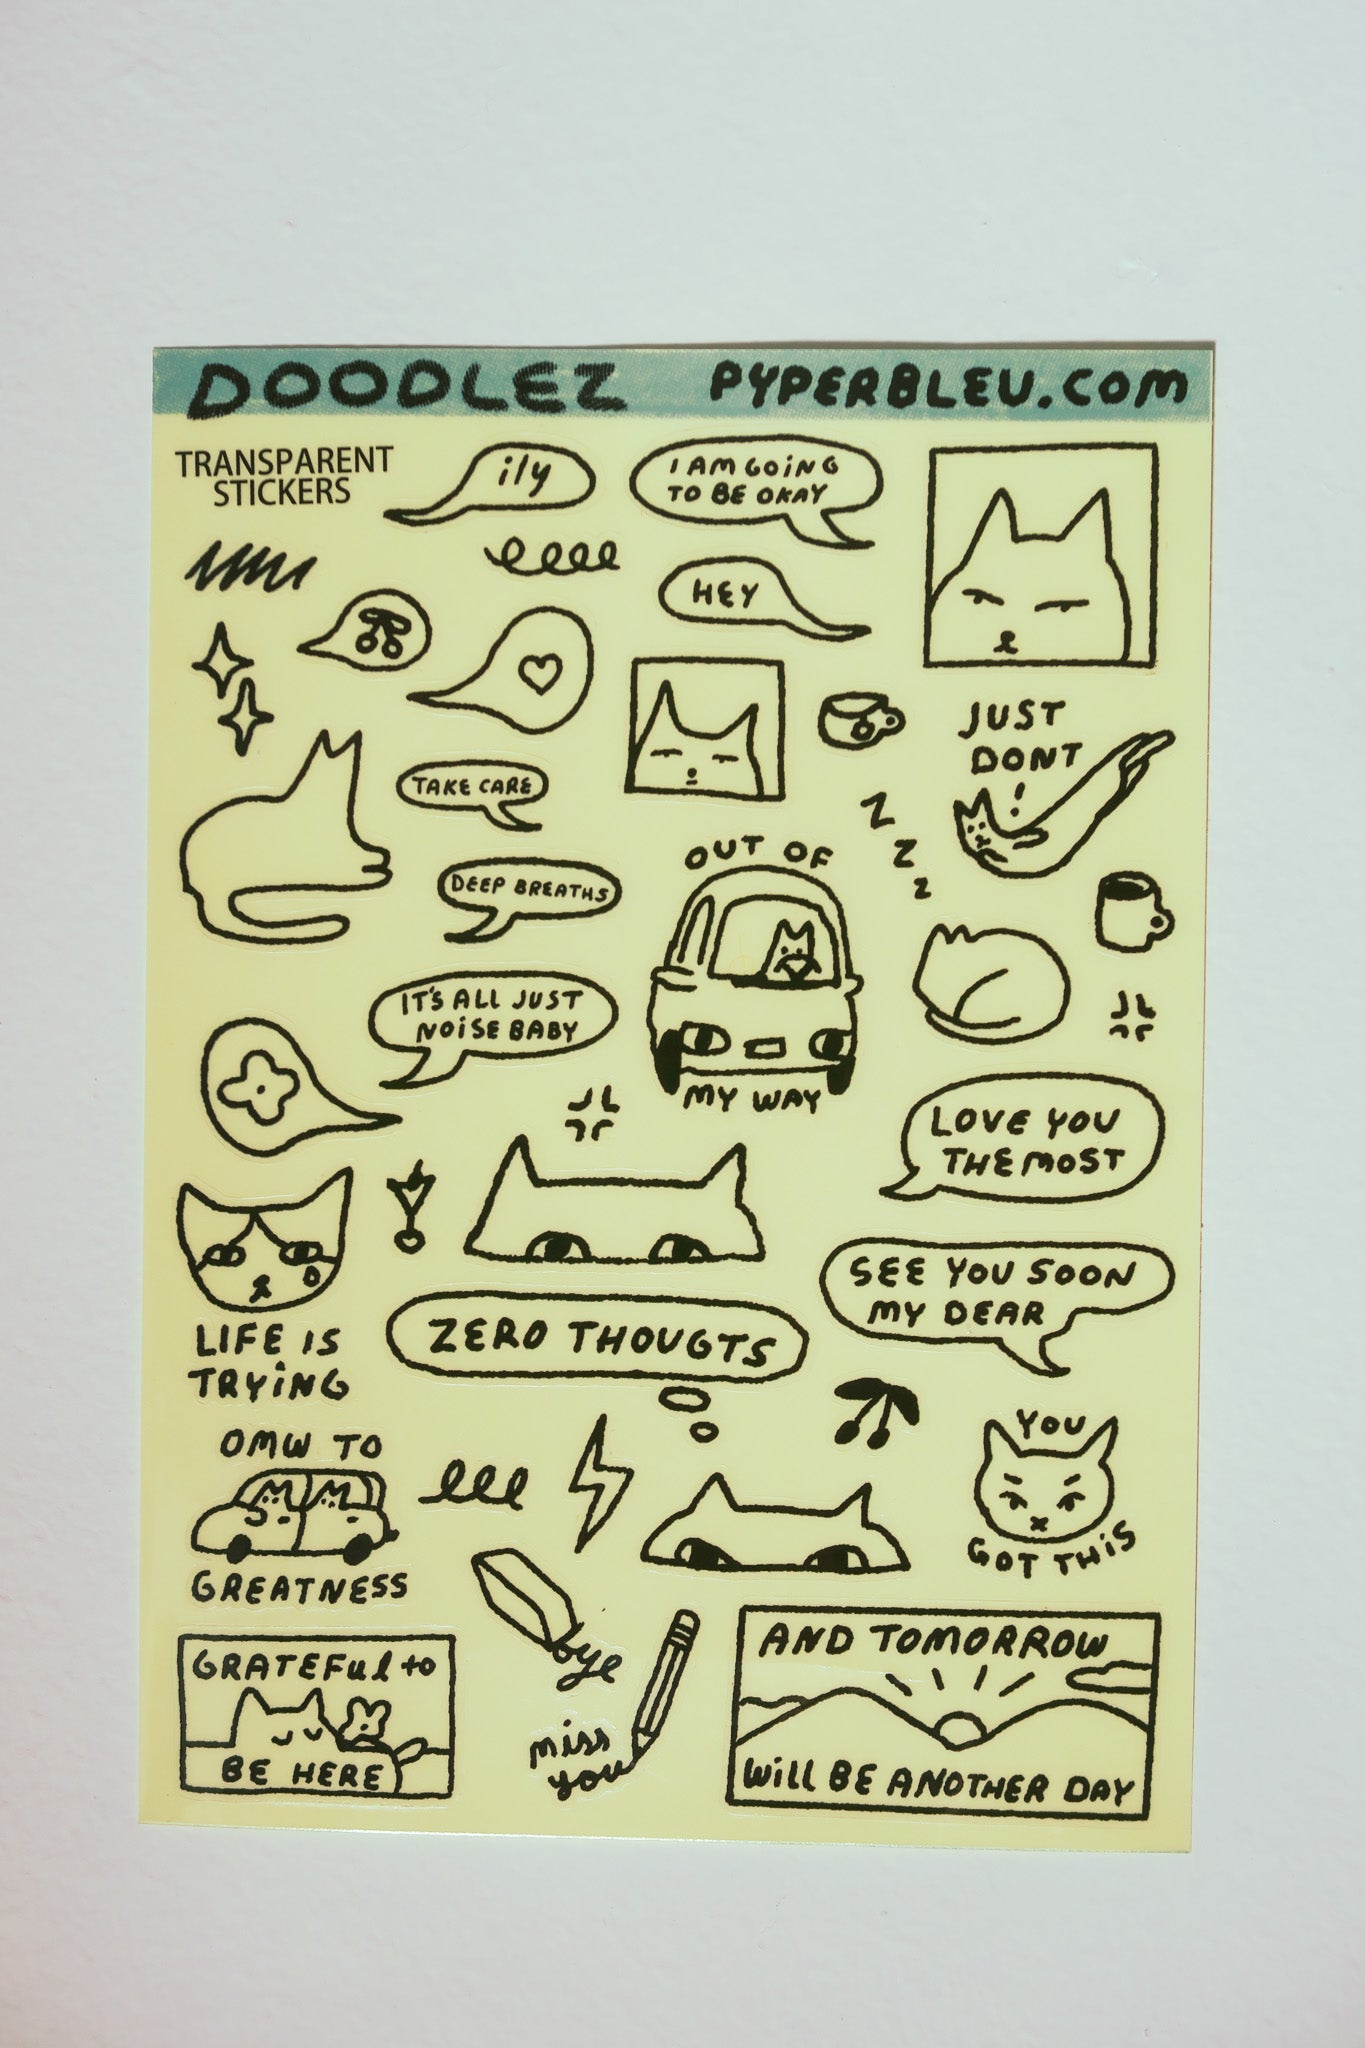 DOODLEZ
PYPERBLEU.COM
TRANSPARENT
STICKERS
ily
I AM GOiNG
TO BE OKAY
HEY
JUST
DONT
!
TAKE CARE
Z
Z
Z
OUT OF
MY WAY
DEEP BREATHS
IT'S ALL JUST
NOiSE BABY
LOVE YOU
THE MOST
SEE YOU SOON
MY DEAR
LIFE IS
TRYiNG
ZERO THOUGTS
YOU
GOT THiS
OMW TO
GREATNESS
bye
miss
you
GRATEFul to
BE HERE
AND TOMORROW
WiLL BE ANOTHER DAY